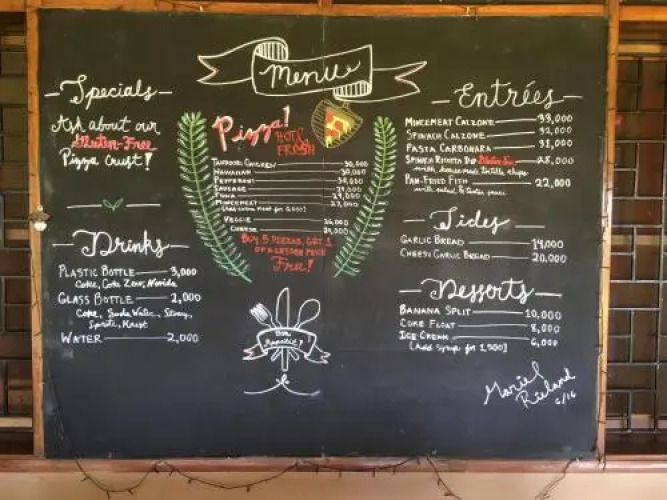 Menu
Specials
Ask about our
Gluten-Free
Pizza Crust!
Drinks
PLASTIC BOTTLE 3,000
Coke, Coke Zero,
GLASS BOTTLE 2,000
Coke, Soda Water, Stoney,
Sprite, Krest
WATER 2,000
Pizza!
HOT & FRESH
TANDOORI CHICKEN 30,000
HAWAIIAN 30,000
PEPPERONI
SAUSAGE 29,000
TUNA 29,000
MINCEMEAT
VEGGIE 26,000
CHEESE 24,000
BUY 5 PIZZAS, GET 1
OF A LESSER PRICE
Free!
Bon
Appetit!
Entrées
MINCEMEAT CALZONE 33,000
SPINACH CALZONE 32,000
PASTA CARBONARA 31,000
SPINACH RICOTTA DIP Gluten Free 25,000
with house made tortilla chips
PAN-FRIED FISH 22,000
with salad & tartar sauce
Sides
GARLIC BREAD 14,000
CHEESY GARLIC BREAD 20,000
Desserts
BANANA SPLIT 10,000
COKE FLOAT 8,000
ICE CREAM 6,000
[Add Syrup for 1,500]
Mariel
Rieland
6/16